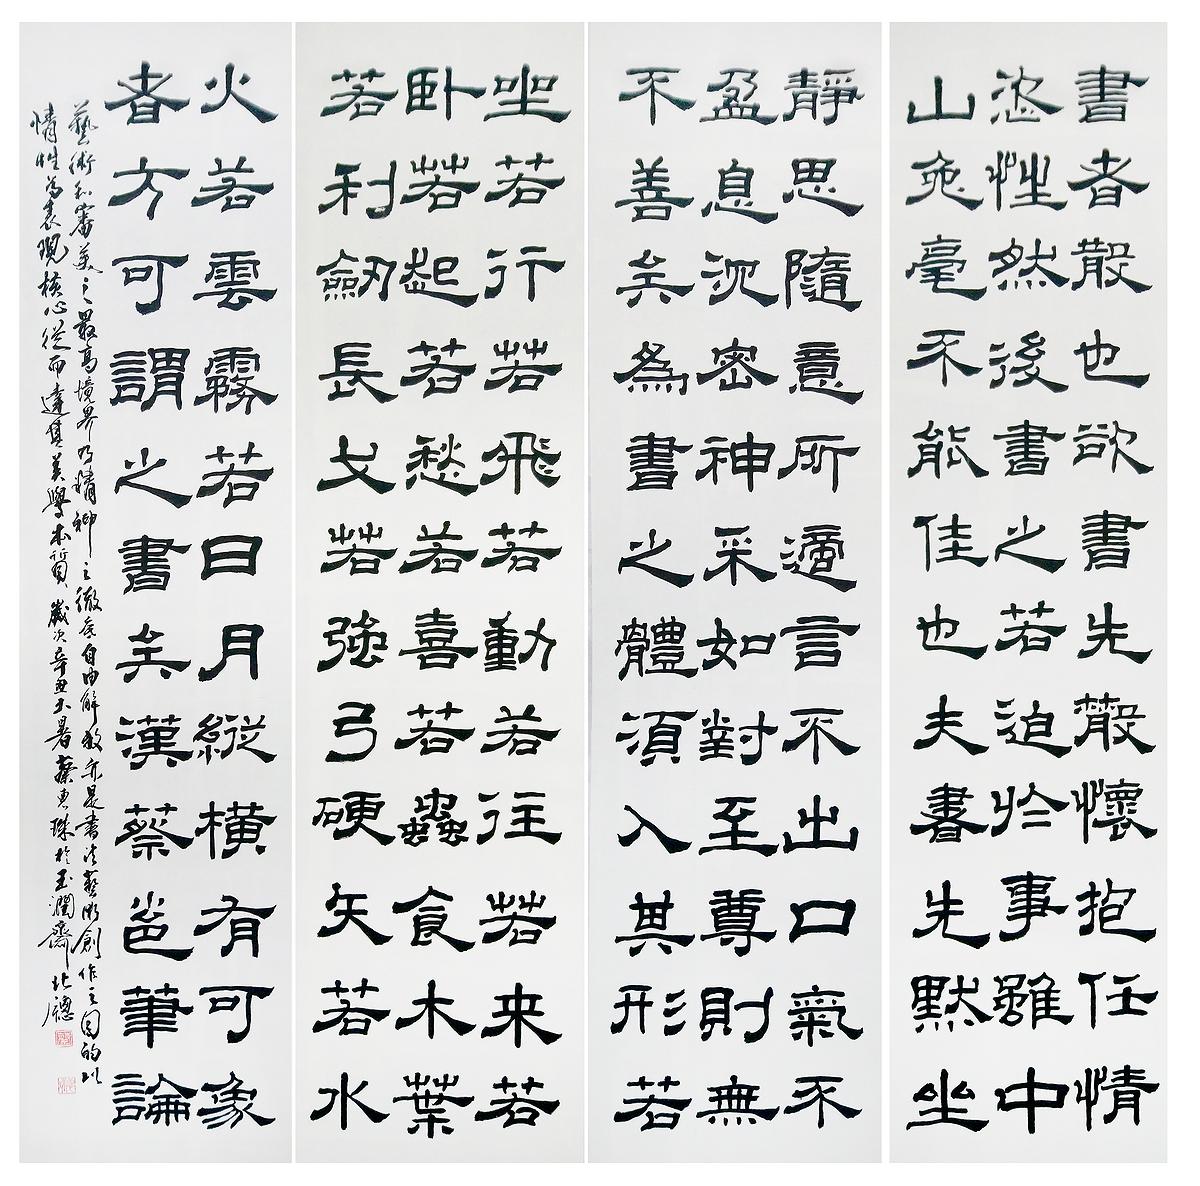 書者散也欲書先散懷抱任情
恣性然後書之若迫於事雖中
山兔毫不能佳也夫書先默坐
靜思隨意所適言不出口氣不
盈息沉密神采如對至尊則無
不善矣為書之體須入其形若
坐若行若飛若動若往若来若
卧若起若愁若喜若蟲食木葉
若利劒長戈若強弓硬矢若水
火若雲霧若日月縱橫有可象
者方可謂之書矣漢蔡邕筆論
藝術和審美之最高境界乃精神之徹底自由解放亦是書法藝術創作之目的以
情性為表現核心從而達其美學本質歲次辛丑大暑蔡東珠於玉潤齋北德